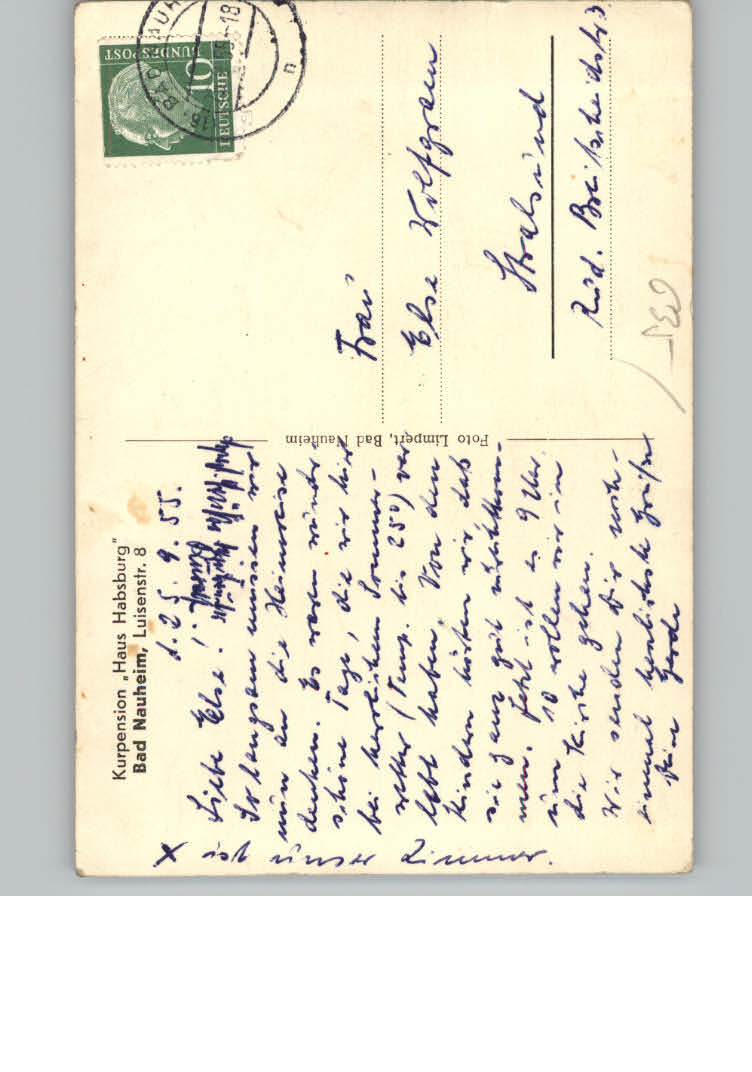 Kurpension „Haus Habsburg"
Bad Nauheim, Luisenstr. 8
d. 25. 9. 55.
Liebe Else!
So langsam müssen wir
nun an die Heimreise
denken. Es waren wunder-
schöne Tage, die wir hier
bei herrlichem Sommer-
wetter (Temp. bis 25°) ver-
lebt haben. Von den
Kindern hörten wir, daß
sie ganz gut zurechtkom-
men. Jetzt ist es 9 Uhr.
um 10 wollen wir in
die Kirche gehen.
Wir senden Dir noch-
einmal herzlichste Grüße
Deine Gerda
X ist unser Zimmer.
Foto Limpert, Bad Nauheim
Frau
Else Wolfgram
Stralsund
Rud. Breitscheidstr.
DEUTSCHE
BUNDESPOST
10
BAD NAUH